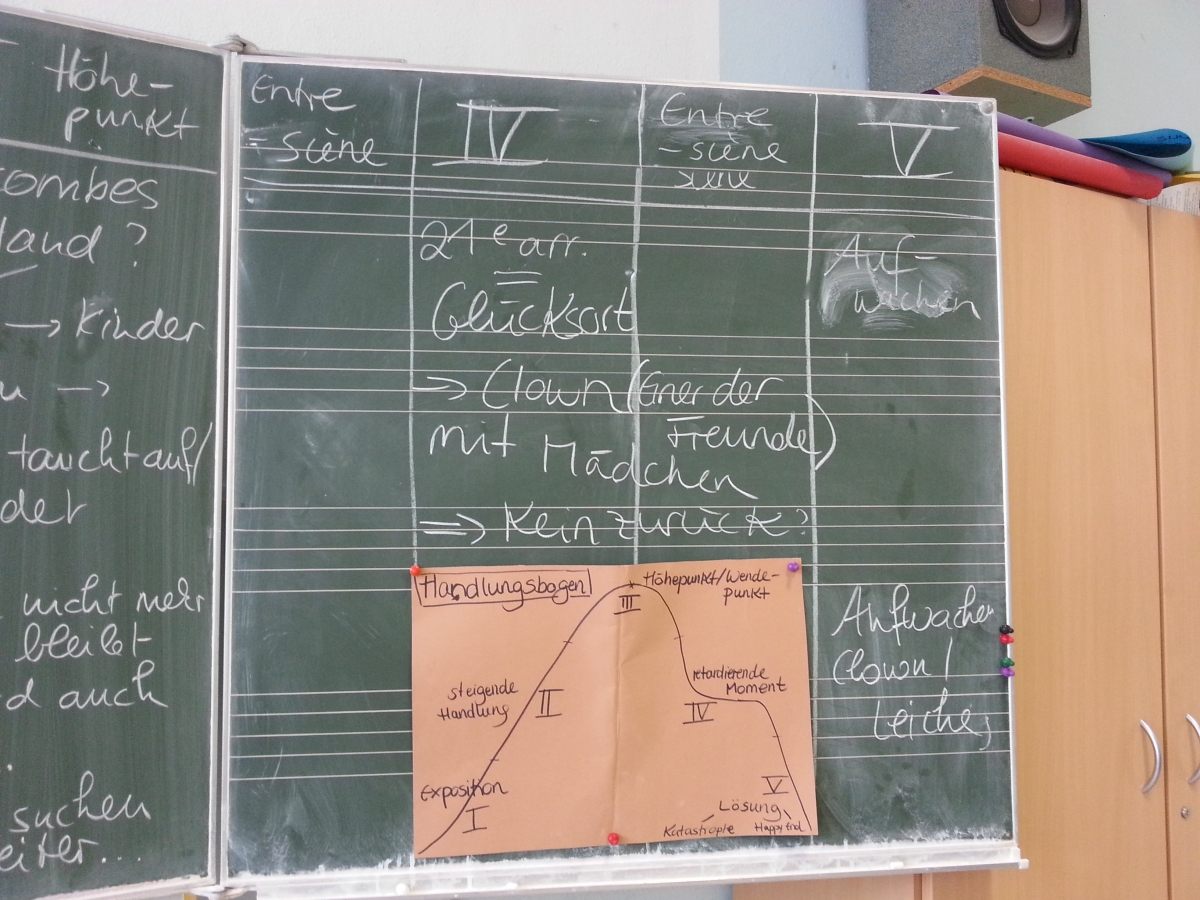 Höhe-
punkt
combes
land ?
→ Kinder
u →
taucht auf/
der
nicht mehr
bleibt
d auch
suchen
eiter....
Entre
- scène
IV
21e arr.
Glücksort
→ Clown (Einer der
Freunde)
mit Mädchen
⇒ Kein zurück?
Entre
- scène
V
Auf-
wachen
Aufwachen
Clown /
Leiche
Handlungsbogen
Höhepunkt/Wende-
punkt
III
steigende
Handlung
II
retardierende
Moment
IV
Exposition
I
V
Lösung
Katastrophe
Happy End